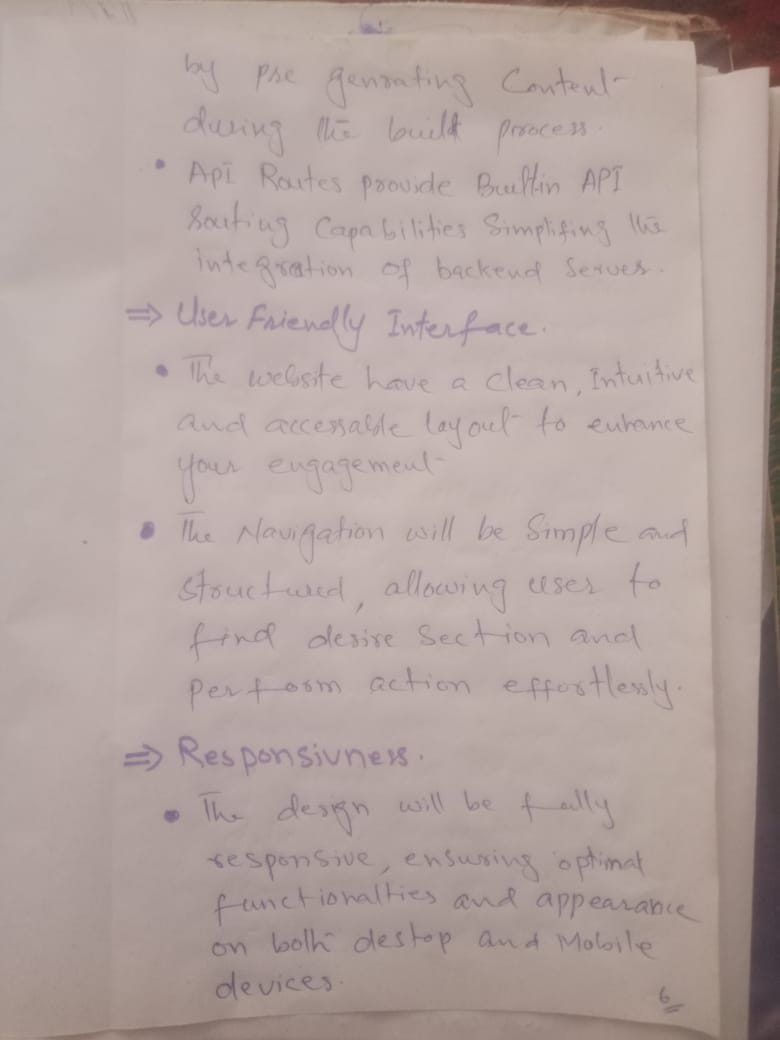 by pre genrating Content
during the build process.
• Api Routes provide Builtin API
routing Capabilities Simplifing the
integration of backend Serves.
⇒ User Friendly Interface.
• The website have a clean, Intuitive
and accessable layout to enhance
your engagement
• The Navigation will be Simple and
structured, allowing user to
find desire Section and
perform action effortlessly.
⇒ Responsivness.
• The design will be fully
responsive, ensuring optimal
functionalties and appearance
on both destop and Mobile
devices.
6